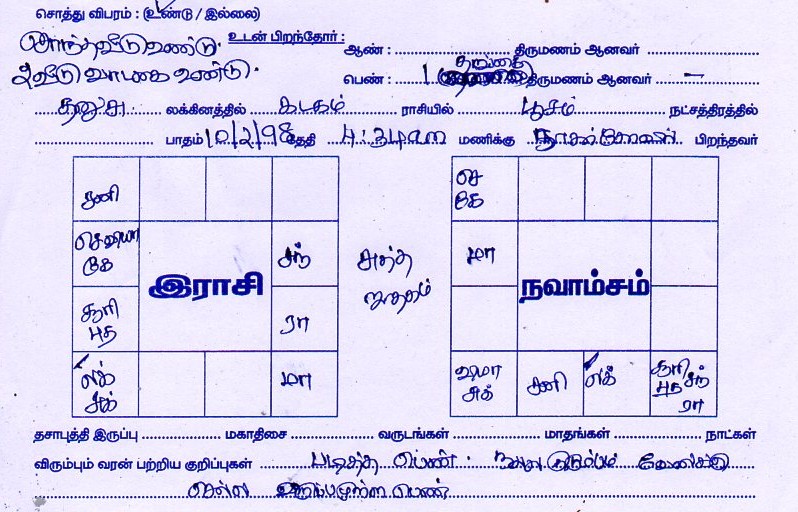 சொத்து விபரம் : (உண்டு / இல்லை)
சொந்தவீடு உண்டு. உடன் பிறந்தோர் : ஆண் : திருமணம் ஆனவர்
2 வீடு வாடகை உண்டு. பெண் : 1 தங்கை திருமணம் ஆனவர் –
தனுசு லக்கினத்தில் கடகம் ராசியில் பூசம் நட்சத்திரத்தில்
பாதம் 10/2/98 தேதி மணிக்கு நாகர்கோவில் பிறந்தவர்
சனி
செ
கே
கே
சந்
மா
இராசி
சுத்த
ஜாதகம்
நவாம்சம்
சூரி
புத
ரா
லக்
சுக்
மா
சுக்
சனி
லக்
சூரி
புத சந்
ரா
தசாபுத்தி இருப்பு மகாதிசை வருடங்கள் மாதங்கள் நாட்கள்
விரும்பும் வரன் பற்றிய குறிப்புகள் படித்த பெண். நல்ல குடும்பம் வேலைக்கு
செல்ல விருப்பமுள்ள பெண்